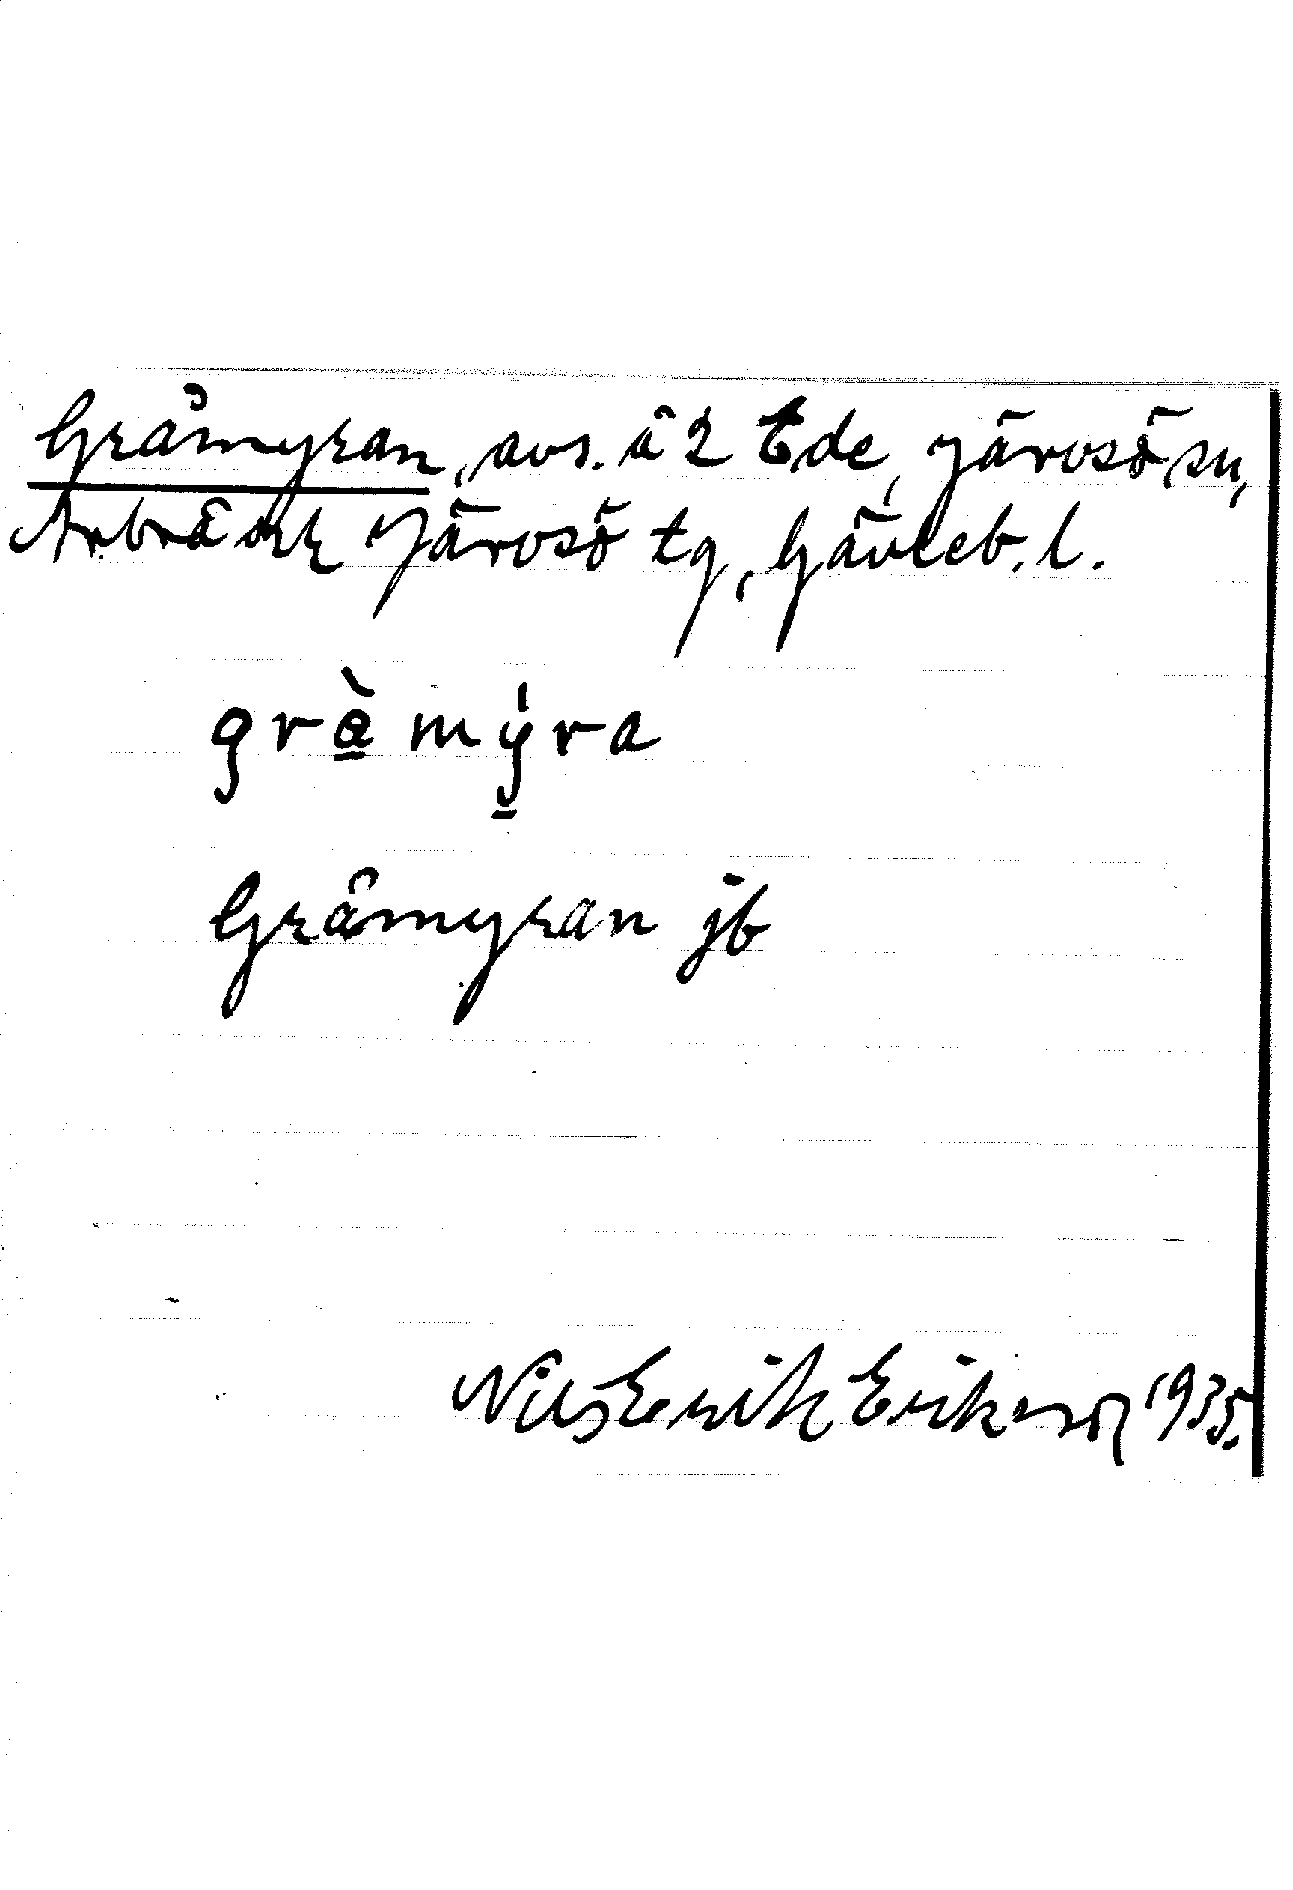 Gråmyran, avs. å 2 Ede, Järvsö sn,
Arbrå och Järvsö tg, Gävleb. l.
gràmýra
Gråmyran jb
Nils Erik Erikson 1935.